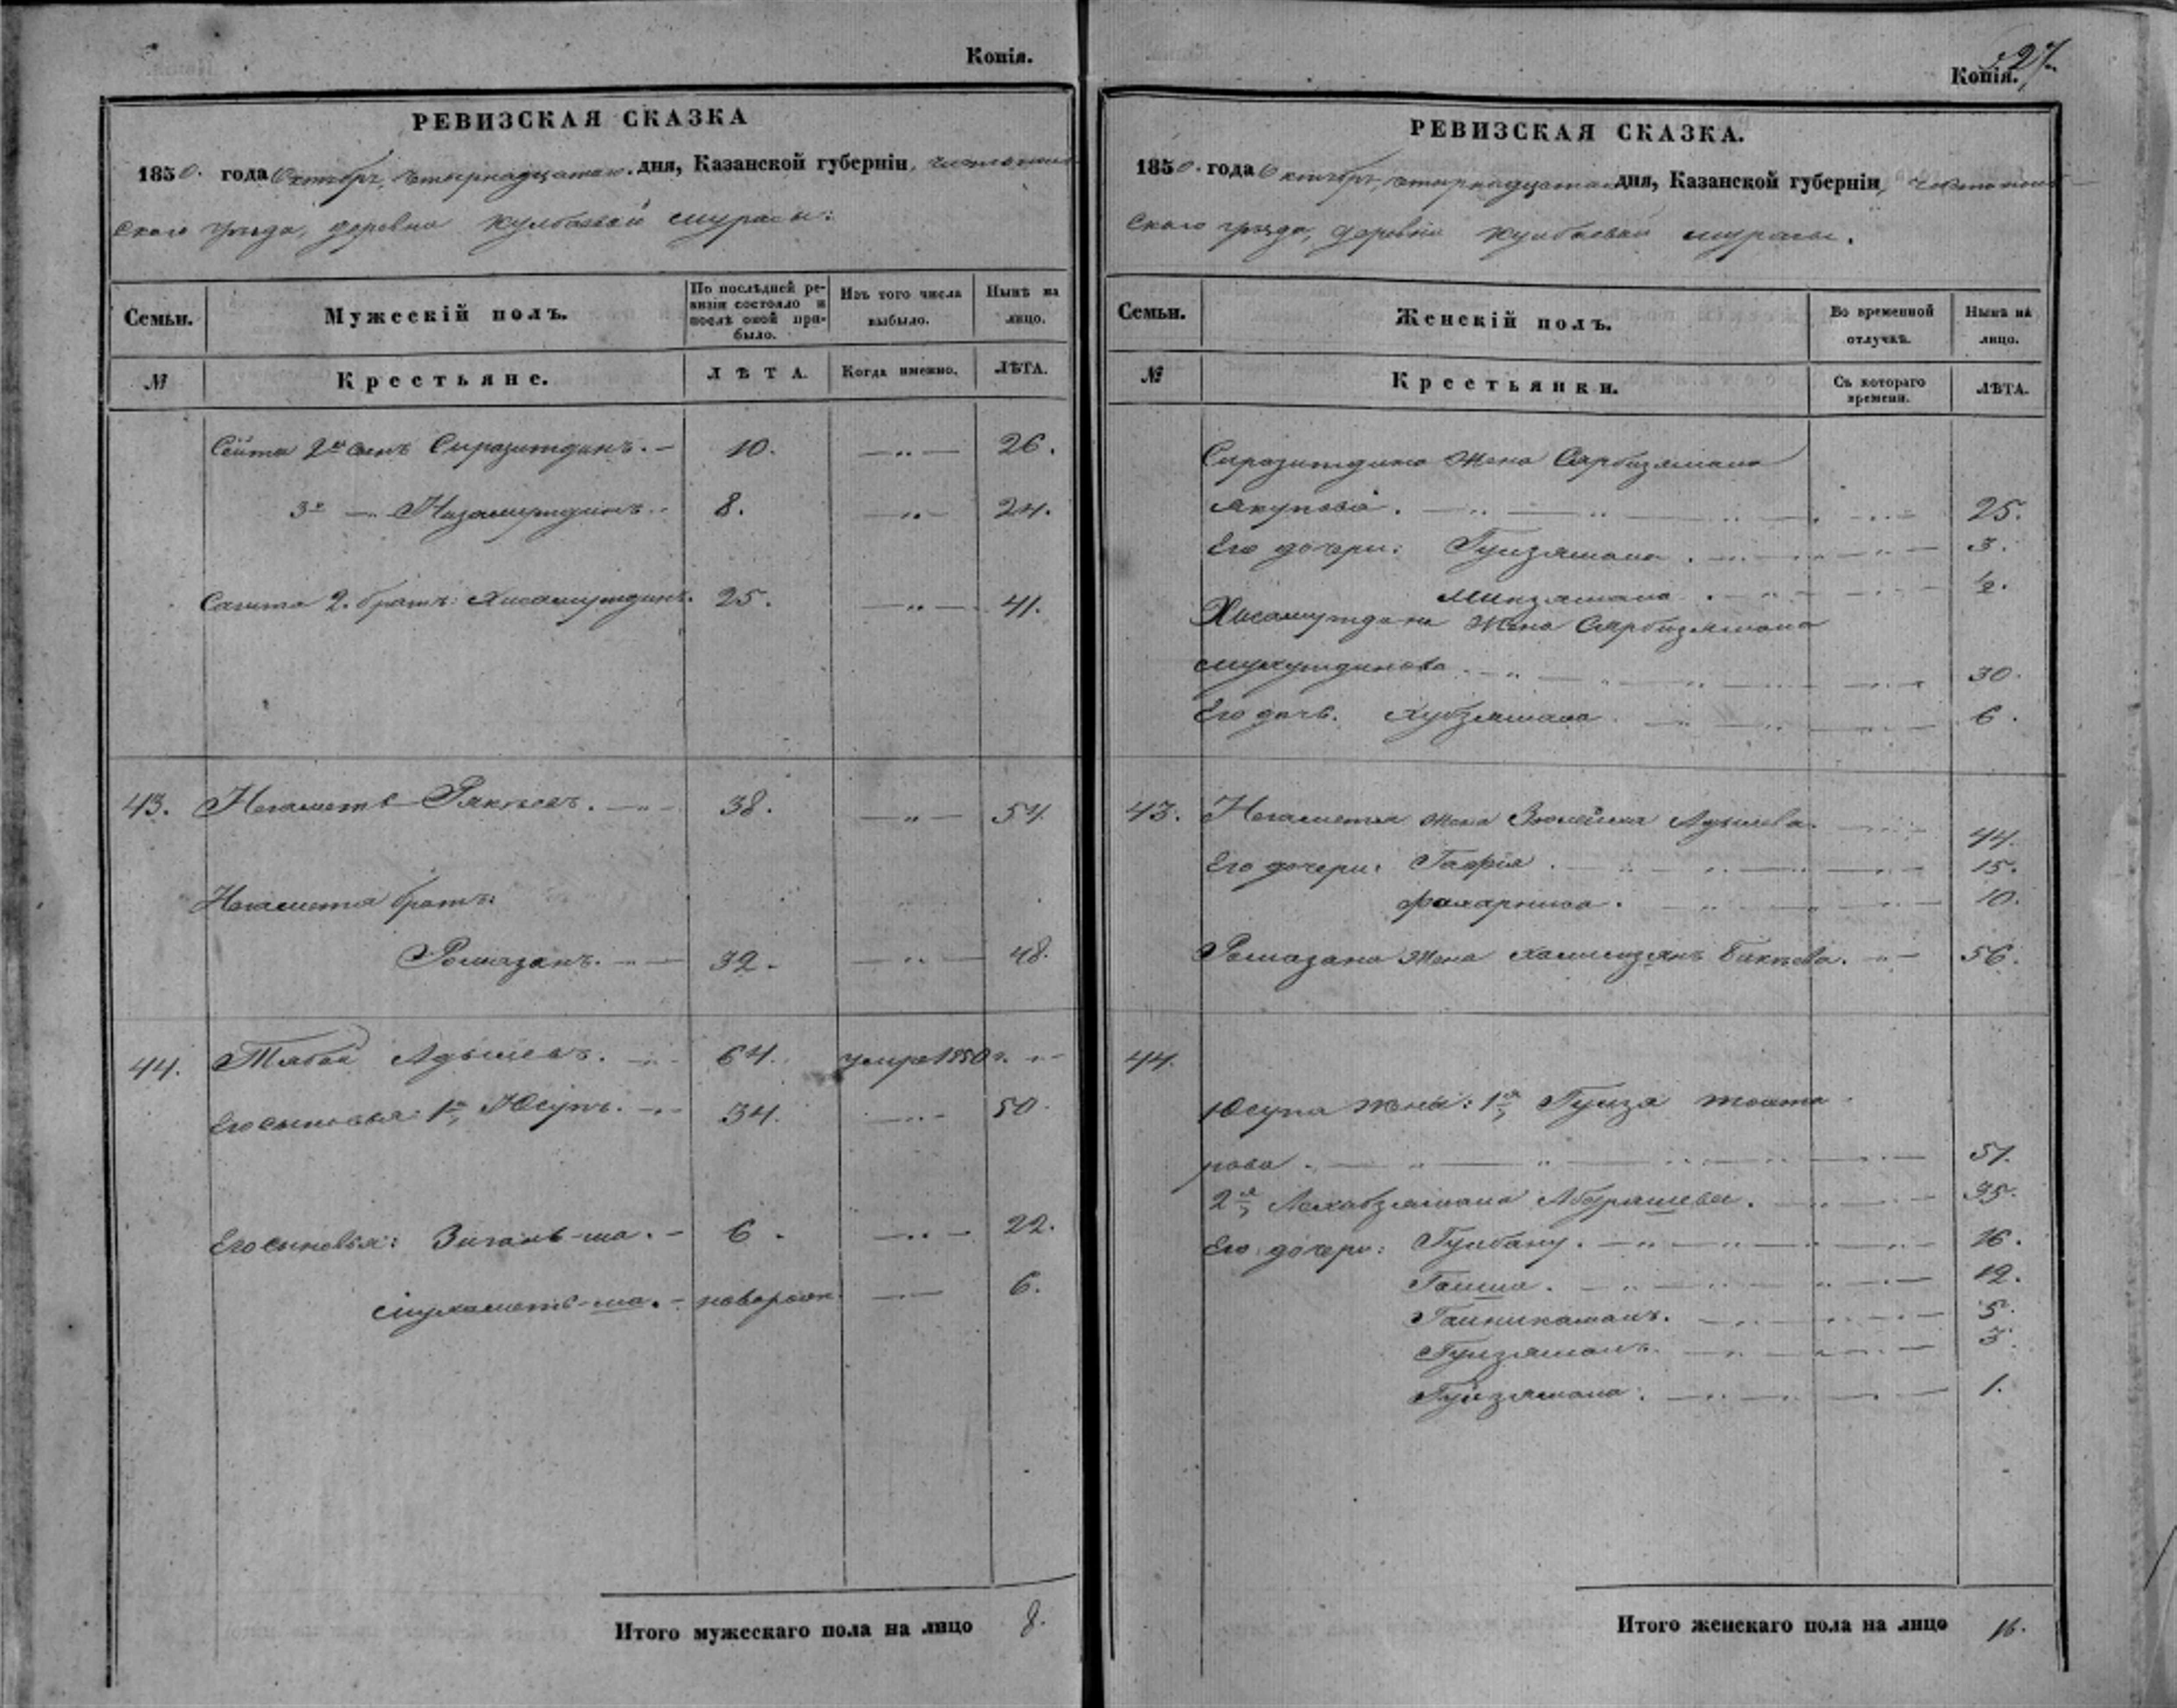 Копія.
РЕВИЗСКАЯ СКАЗКА
1850. года Октября четырнадцатаго дня, Казанской губерніи, Чистополь
скаго уѣзда, деревни Кулбаевой Мурасы:
Семьи.
Мужескій полъ.
По послѣдней ре-
визіи состояло и
послѣ оной при-
было.
Изъ того числа
выбыло.
Нынѣ на
лицо.
№
Крестьяне.
ЛѢТА.
Когда именно.
ЛѢТА.
Сеита 2й сынъ Сиразитдинъ. 10. 26.
3й Низамутдинъ. 8. 24.
Сагита 2. братъ: Хисамутдинъ. 25. 41.
43. Негаметь 38. 54
Негаметя братъ:
Рамазанъ. 32. 48.
44. Тябей Адышевъ. 64. умре 1850 г.
Его сыновья: 1й, Юсупъ. 34. 50.
Его сыновья: Зигань-ша. 6. 22.
Мухаметь-ша. новорожд. 6.
Итого мужескаго пола на лицо 8.
527
Копія.
РЕВИЗСКАЯ СКАЗКА.
1850. года Октября четырнадцатаго дня, Казанской губерніи, Чистополь
скаго уѣзда, деревни Кулбаевой Мурасы.
Семьи.
Женскій полъ.
Во временной
отлучкѣ.
Нынѣ на
лицо.
№
Крестьянки.
Съ котораго
времени.
ЛѢТА.
Сиразитдина жена Сарбизямала
Якупова. 25.
Его дочери: Гулзямала. 3.
Минзямала. ½.
Хисамутдина жена Сярбизямала
Мухутдинова. 30.
Его дочь. Хубзямала. 6.
43. Негаметя жена Зюлейха Адышева. 44.
Его дочери: Гафія. 15.
Фахарниса. 10.
Рамазана жена Бикѣева. 56.
44.
Юсупа жены: 1я, Гулза Токта
рова. 51.
2я, Махабзямала Абдряшева. 35.
Его дочери: Гулбану. 16.
Гайша. 12.
Гайникамалъ. 5.
Гулзямалъ. 3.
Гулзямала. 1.
Итого женскаго пола на лицо 16.